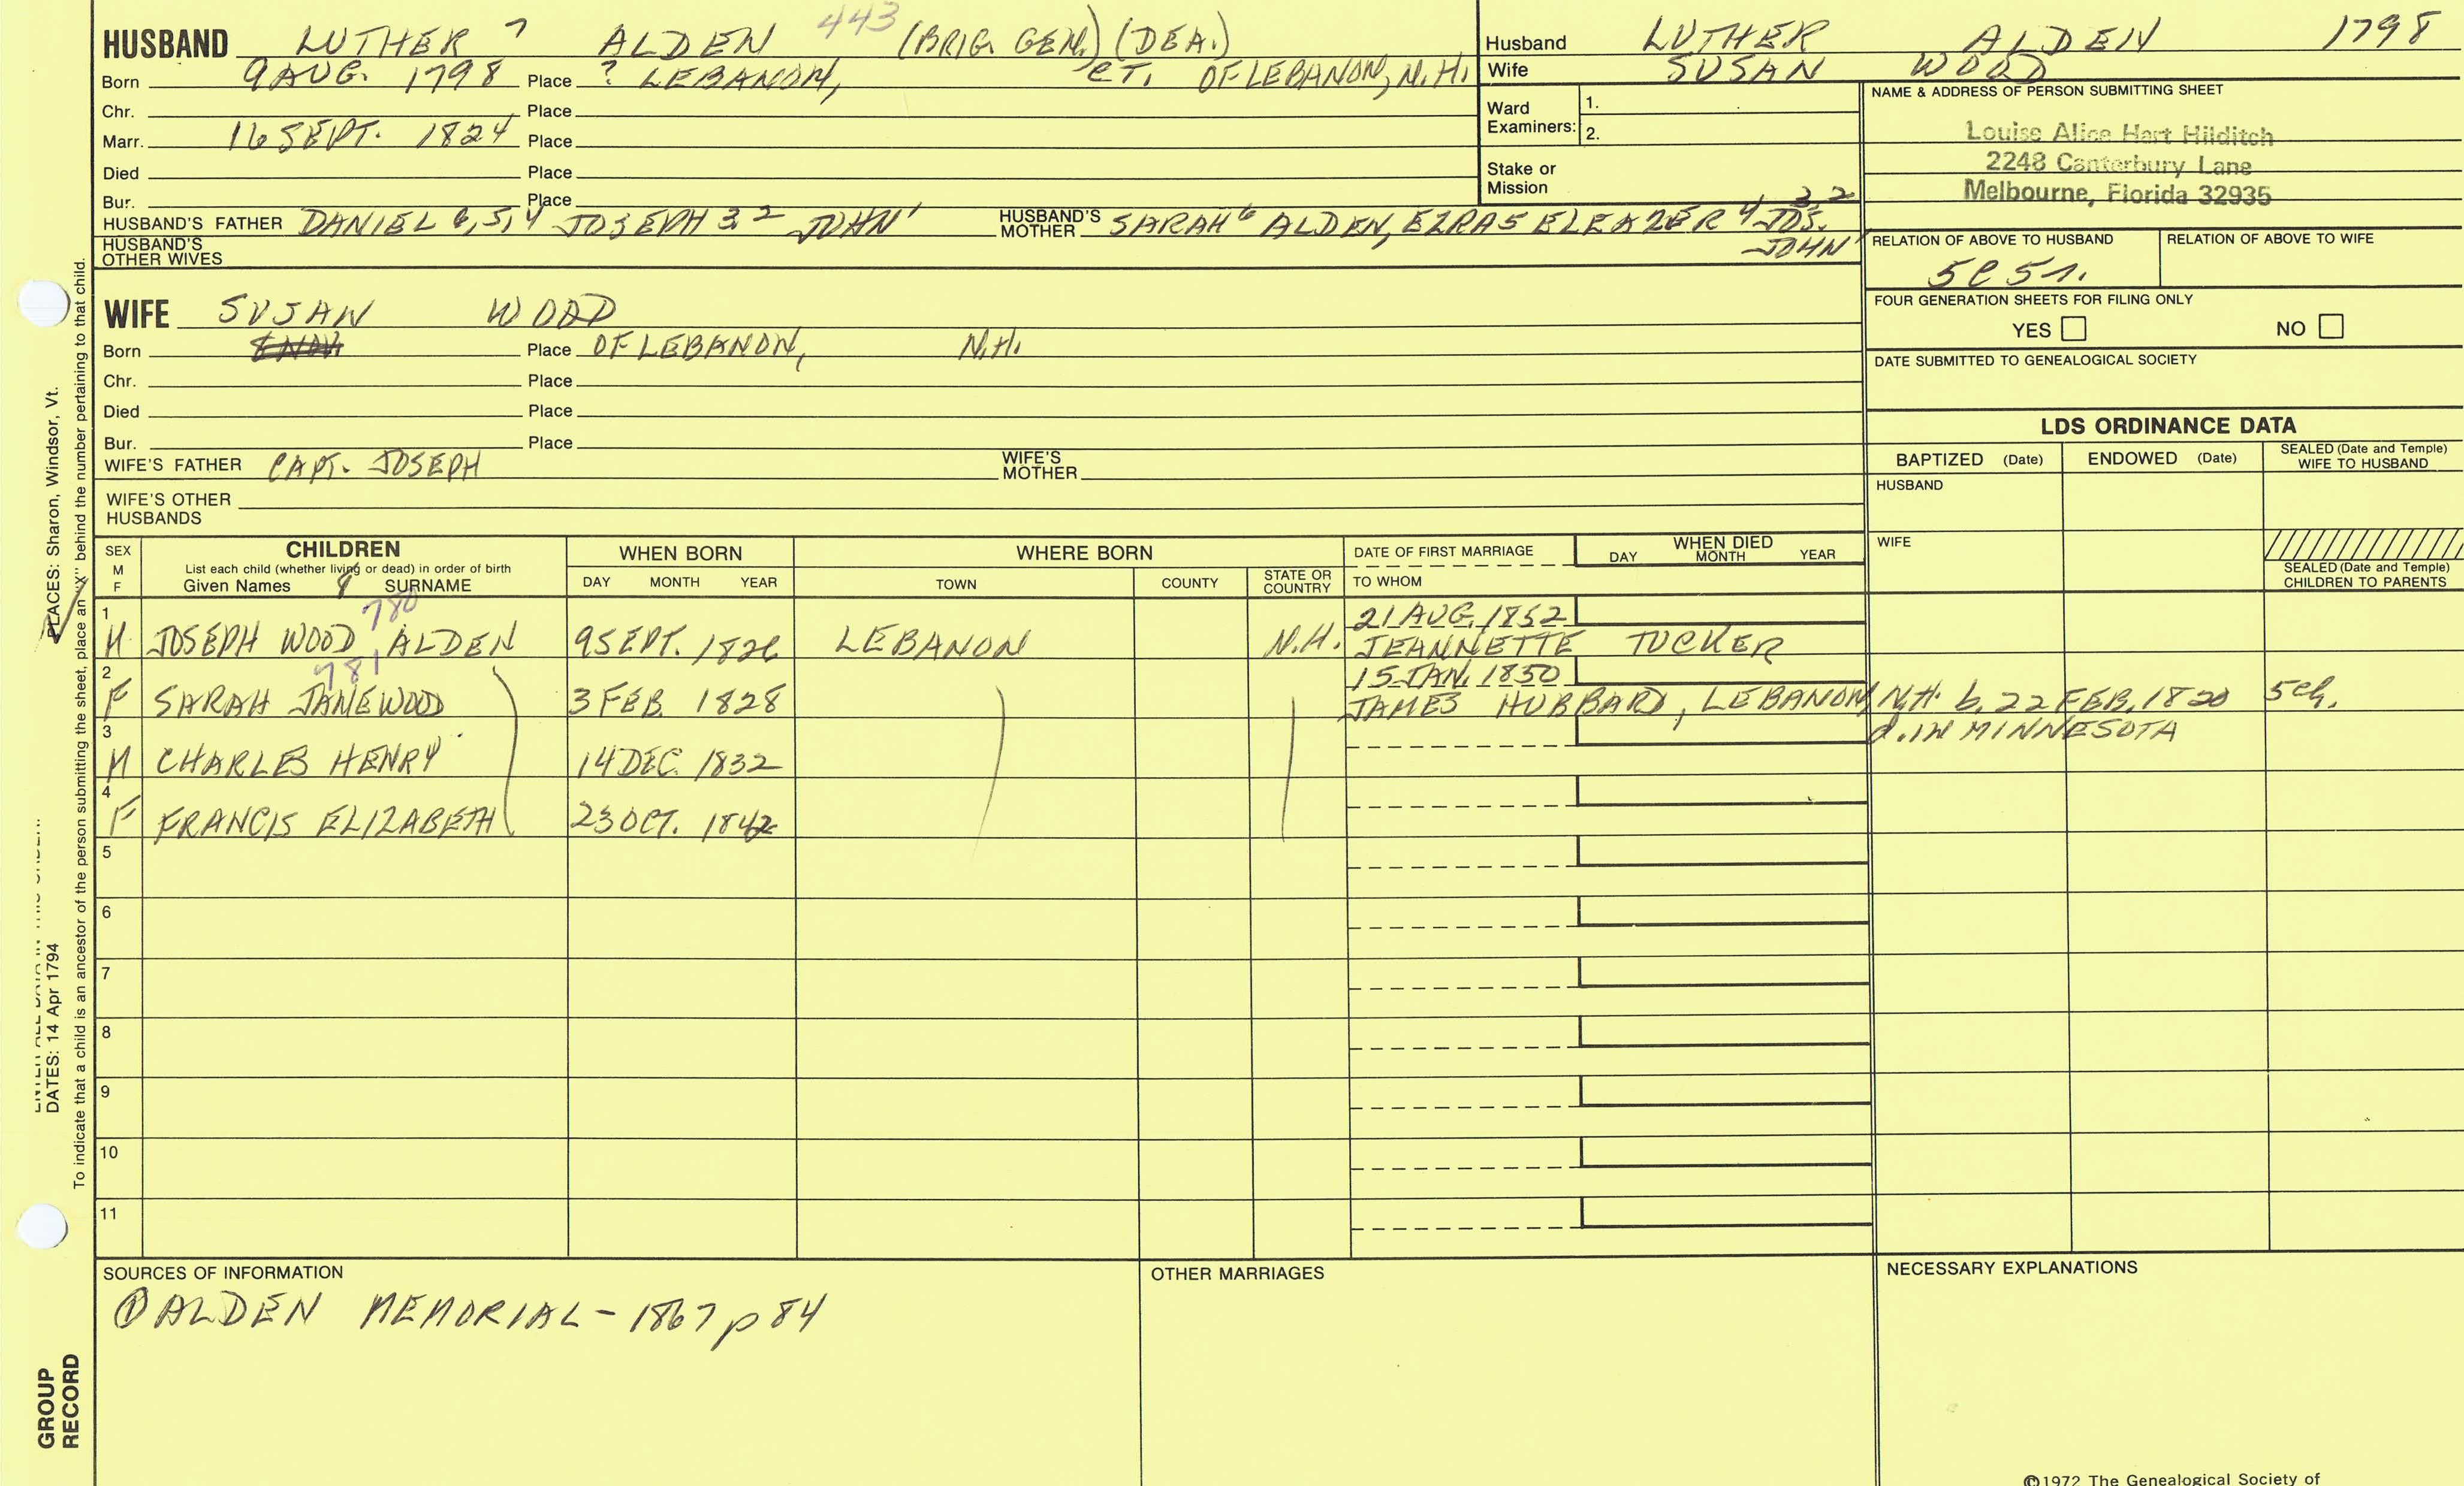 HUSBAND LUTHER 7 ALDEN 443 (BRIG. GEN.) (DEA.)
Born 9 AUG. 1798 Place ? LEBANON, CT. OF LEBANON, N.H.
Chr. Place
Marr. 16 SEPT. 1824 Place
Died Place
Bur. Place
HUSBAND'S FATHER DANIEL 6,5,4 JOSEPH 3,2 JOHN 1 HUSBAND'S MOTHER SARAH 6 ALDEN, EZRA 5 ELEAZER 4 JOS. 3,2 JOHN 1
HUSBAND'S OTHER WIVES
Husband LUTHER ALDEN 1798
Wife SUSAN WOOD
Ward Examiners: 1.
2.
Stake or Mission
NAME & ADDRESS OF PERSON SUBMITTING SHEET
Louise Alice Hart Hilditch
2248 Canterbury Lane
Melbourne, Florida 32935
RELATION OF ABOVE TO HUSBAND RELATION OF ABOVE TO WIFE
5C5r.
FOUR GENERATION SHEETS FOR FILING ONLY
YES NO
DATE SUBMITTED TO GENEALOGICAL SOCIETY
WIFE SUSAN WOOD
Born Place OF LEBANON, N.H.
Chr. Place
Died Place
Bur. Place
WIFE'S FATHER CAPT. JOSEPH WIFE'S MOTHER
WIFE'S OTHER HUSBANDS
LDS ORDINANCE DATA
BAPTIZED (Date) ENDOWED (Date) SEALED (Date and Temple) WIFE TO HUSBAND
HUSBAND
WIFE
SEALED (Date and Temple) CHILDREN TO PARENTS
SEX M F
CHILDREN
List each child (whether living or dead) in order of birth
Given Names SURNAME
WHEN BORN
DAY MONTH YEAR
WHERE BORN
TOWN COUNTY STATE OR COUNTRY
DATE OF FIRST MARRIAGE
TO WHOM
WHEN DIED
DAY MONTH YEAR
1 780 21 AUG. 1852
M JOSEPH WOOD ALDEN 9 SEPT. 1826 LEBANON N.H. JEANNETTE TUCKER
2 781 15 JAN. 1850
F SARAH JANE WOOD 3 FEB. 1828 JAMES HUBBARD, LEBANON, N.H. b. 22 FEB. 1820 5ch.
d. IN MINNESOTA
3
M CHARLES HENRY 14 DEC. 1832
4
F FRANCIS ELIZABETH 23 OCT. 1842
5
6
7
8
9
10
11
SOURCES OF INFORMATION
① ALDEN MEMORIAL - 1867 p 84
OTHER MARRIAGES
NECESSARY EXPLANATIONS
©1972 The Genealogical Society of
PLACES: Sharon, Windsor, Vt.
DATES: 14 Apr 1794
To indicate that a child is an ancestor of the person submitting the sheet, place an "X" behind the number pertaining to that child.
GROUP RECORD